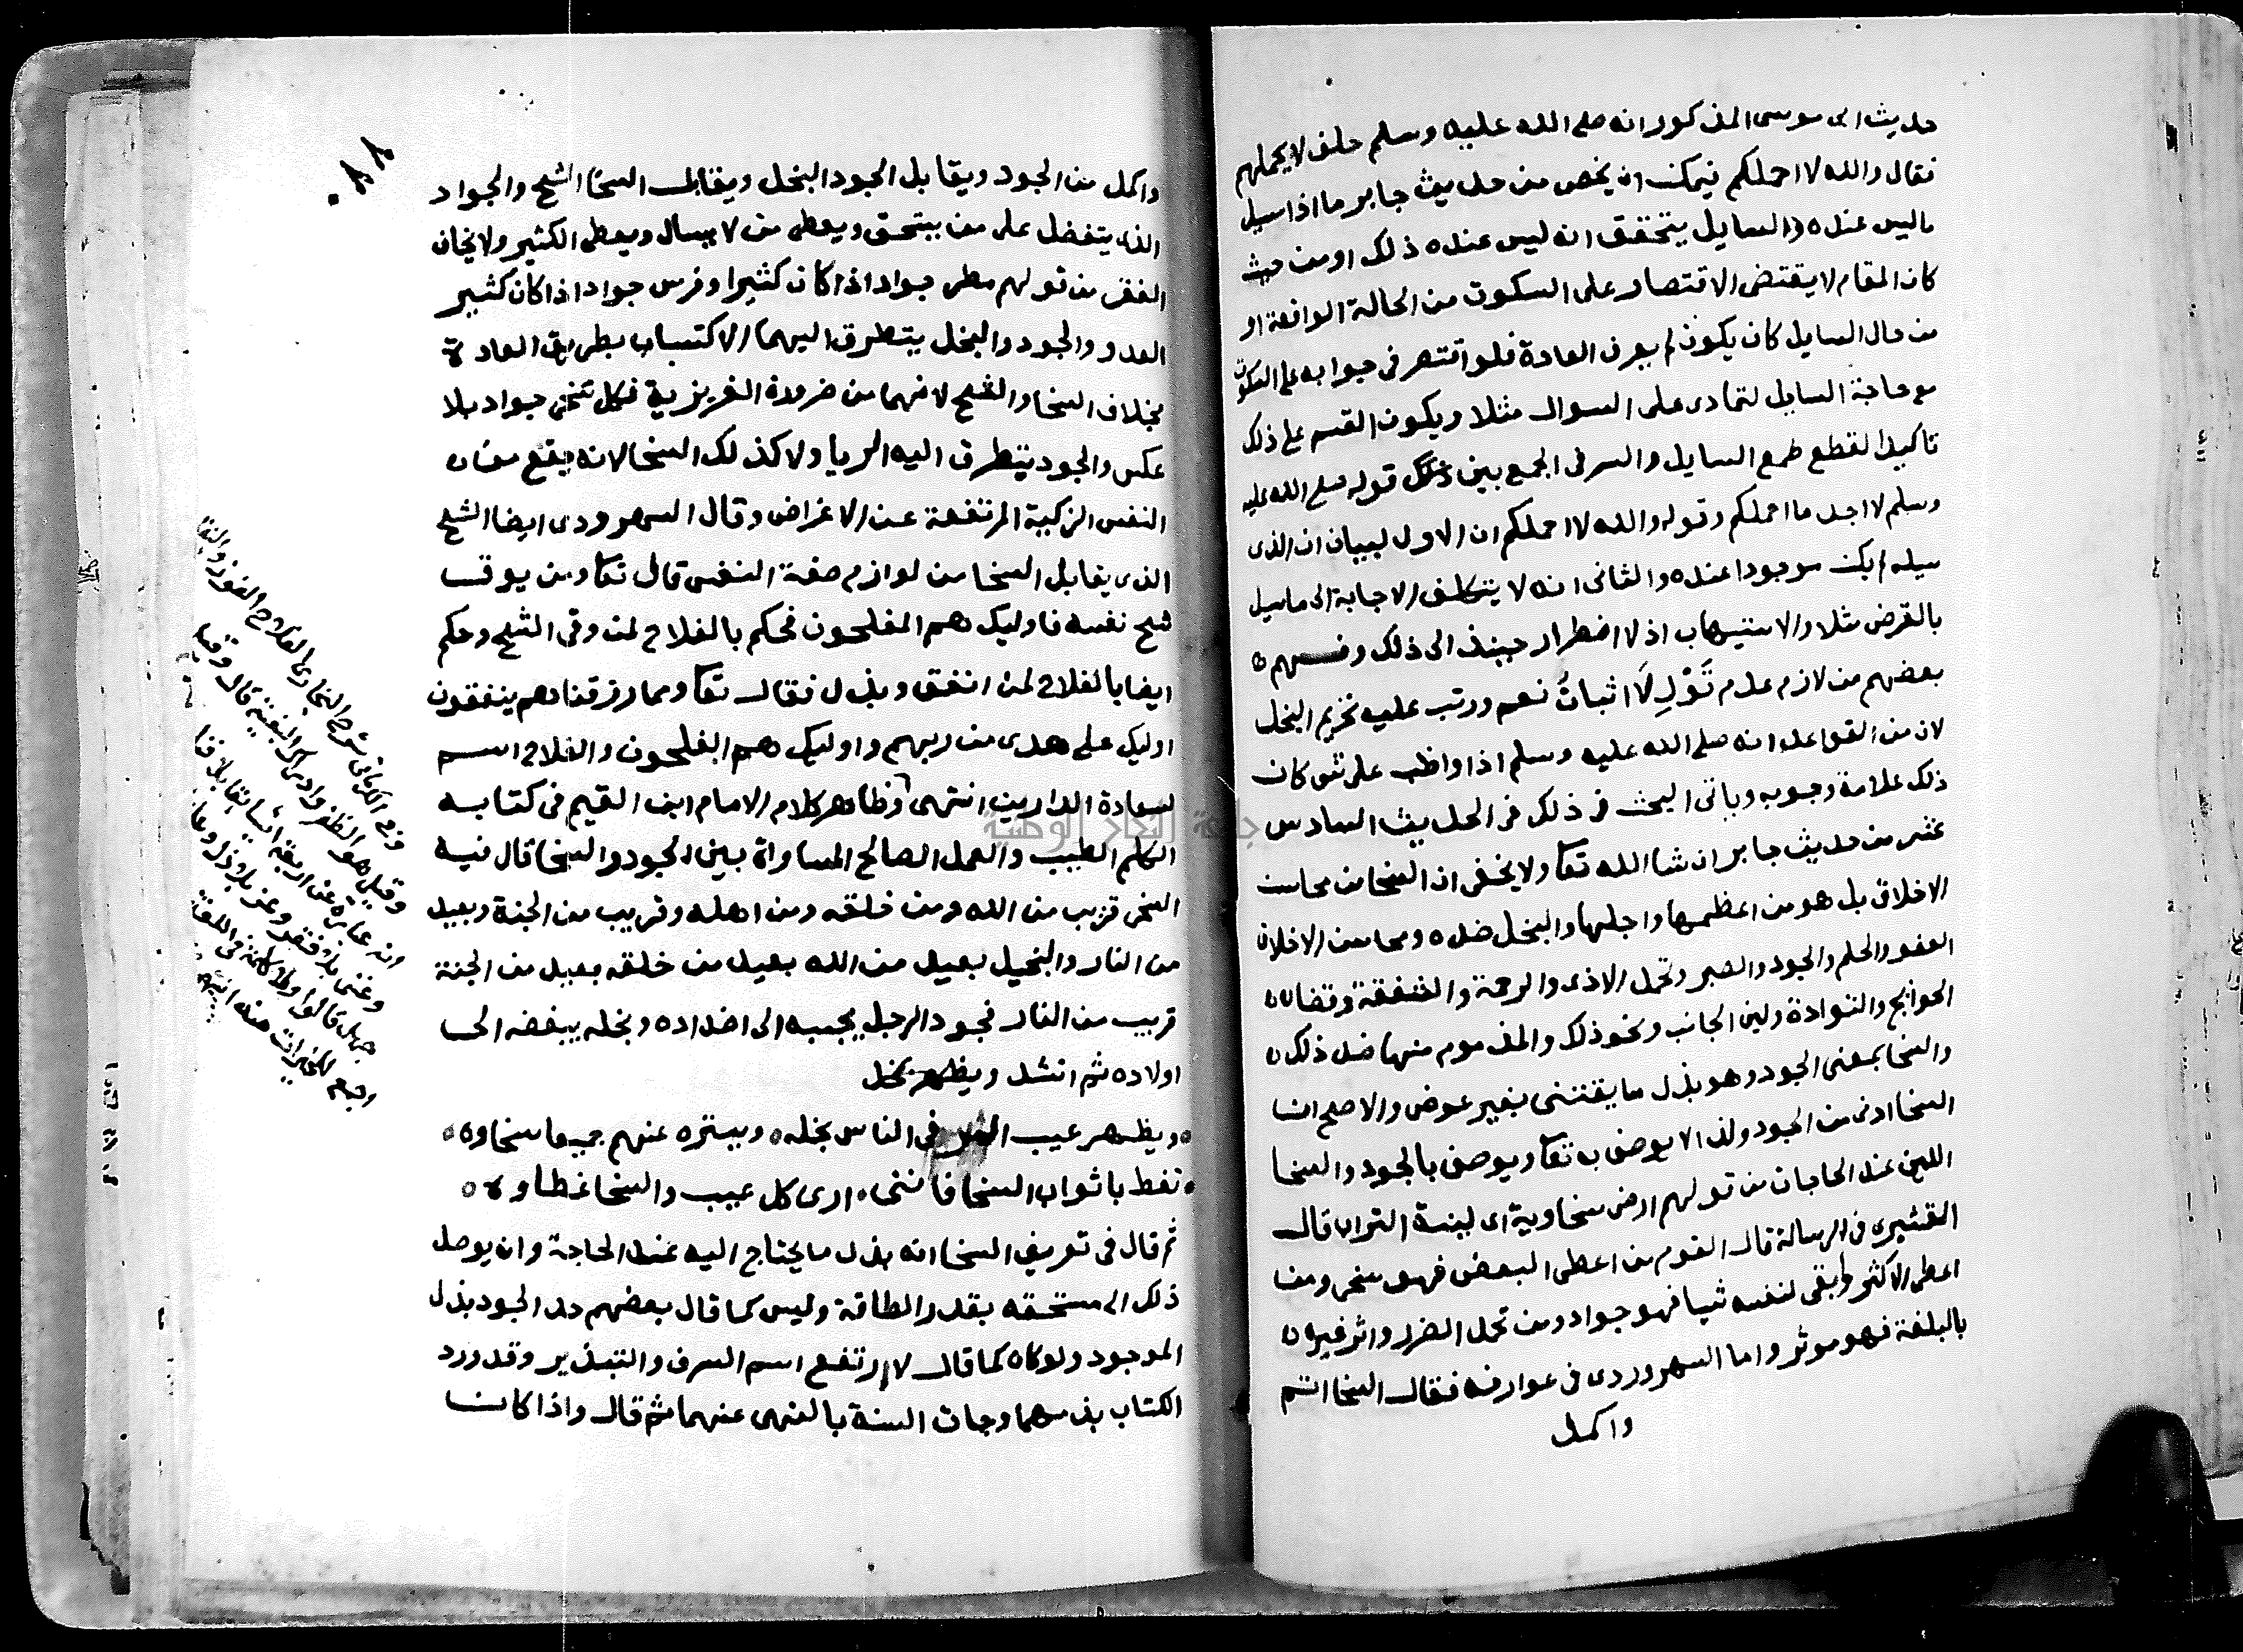 حديث ابى موسى المذكور انه صلى الله عليه وسلم حلف لا يحملهم
فقال والله لا احملكم فيمكن ان يخص من حديث جابر ما اذا سيل
ماليس عنده والسايل يتحقق انه ليس عنده ذلك او من حيث
كان المقام لا يقتضى الاقتصار على السكوت من الحالة الواقعة او
من حال السايل كان يكون لم يعرف العادة فلو اقتصر فى جوابه على السكوت
مع حاجة السايل لتمادى على السوال مثلا ويكون القسم على ذلك
تاكيدا لقطع طمع السايل والسر فى الجمع بين قوله صلى الله عليه
وسلم لا اجد ما احملكم وقوله والله لا احملكم ان الاول لبيان ان الذى
سيله لم يكن موجودا عنده والثانى انه لا يتكلف الاجابة الى ما سيل
بالقرض مثلا والاستيهاب اذ لا اضطرار حينيذ الى ذلك وفهم
بعضهم من لازم عدم قول لا اثبات نعم ورتب عليه تحريم البخل
لان من القواعد انه صلى الله عليه وسلم اذا واظب على شى كان
ذلك علامة وجوبه وياتى البحث فى ذلك فى الحديث السادس
عشر من حديث جابر ان شا الله تعا ولا يخفى ان السخا من محاسن
الاخلاق بل هو من اعظمها واجلها والبخل ضده ومحاسن الاخلاق
العفو والحلم والجود والصبر وتحمل الاذى والرحمة والشفقة وقضا
الحوايج والتوادة ولين الجانب ونحو ذلك والمذموم منها ضد ذلك
والسخا بمعنى الجود وهو بذل ما يقتنى بغير عوض والاصح ان
السخا ادنى من الجود ولذا لا يوصف به تعا ويوصف بالجود والسخا
اللين عند الحاجات من قولهم ارض سخاوية اى لينة التراب قال
القشيرى فى الرسالة قال القوم من اعطى البعض فهو سخى ومن
اعطى الاكثر وابقى لنفسه شيا فهو جواد ومن تحمل الضرر واثر غيره
بالبلغة فهو موثر واما السهروردى فى عوارفه فقال السخا اتم
واكمل
٨٨
واكمل من الجود ويقابل الجود البخل ويقابل السخا الشح والجواد
الذى يتفضل على من يستحق ويعطى من لا يسال ويعطى الكثير ولا يخاف
الفقر من قولهم مطر جواد اذا كان كثيرا وفرس جواد اذا كان كثير
العدو والجود والبخل يتطرق اليهما الاكتساب بطريق العادة
بخلاف السخا والشح لانهما من ضرورة الغريزية فكل سخى جواد بلا
عكس والجود يتطرق اليه الريا ولا كذلك السخا لانه يقع من
النفس الزكية المرتفعة عن الاغراض وقال السهروردى ايضا الشح
الذى يقابل السخا من لوازم صفة النفس قال تعا ومن يوق
شح نفسه فاوليك هم المفلحون فحكم بالفلاح لمن وقى الشح وحكم
ايضا بالفلاح لمن انفق وبذل فقال تعا ومما رزقناهم ينفقون
اوليك على هدى من ربهم واوليك هم المفلحون والفلاح اسم
لسعادة الدارين انتهى وظاهر كلام الامام ابن القيم فى كتابه
الكلم الطيب والعمل الصالح المساواة بين الجود والسخا قال فيه
السخى قريب من الله ومن خلقه ومن اهله وقريب من الجنة وبعيد
من النار والبخيل بعيد من الله بعيد من خلقه بعيد من الجنة
قريب من النار فجود الرجل يحببه الى اضداده وبخله يبغضه الى
اولاده ثم انشد ويظهر بخل
ويظهر عيب المرء فى الناس بخله ويستره عنهم جميعا سخاوه
تغط باثواب السخا فاننى ارى كل عيب والسخا غطاوه
ثم قال فى تعريف السخا انه بذل ما يحتاج اليه عند الحاجة وان يوصل
ذلك الى مستحقه بقدر الطاقة وليس كما قال بعضهم حد الجود بذل
الموجود ولو كان كما قال لارتفع اسم السرف والتبذير وقد ورد
الكتاب بذمهما وجات السنة بالنهى عنهما ثم قال واذا كان
وفى الكرمانى شرح البخارى الفلاح الفوز والبقا
وقيل هو الظفر وادراك البغية قال وقيل
انه عبارة عن اربعة اشيا بقا بلا فنا
وغنى بلا فقر وعز بلا ذل وعلم بلا
جهل قالوا ولا كلمة فى اللغة
اجمع للخيرات منه انتهى